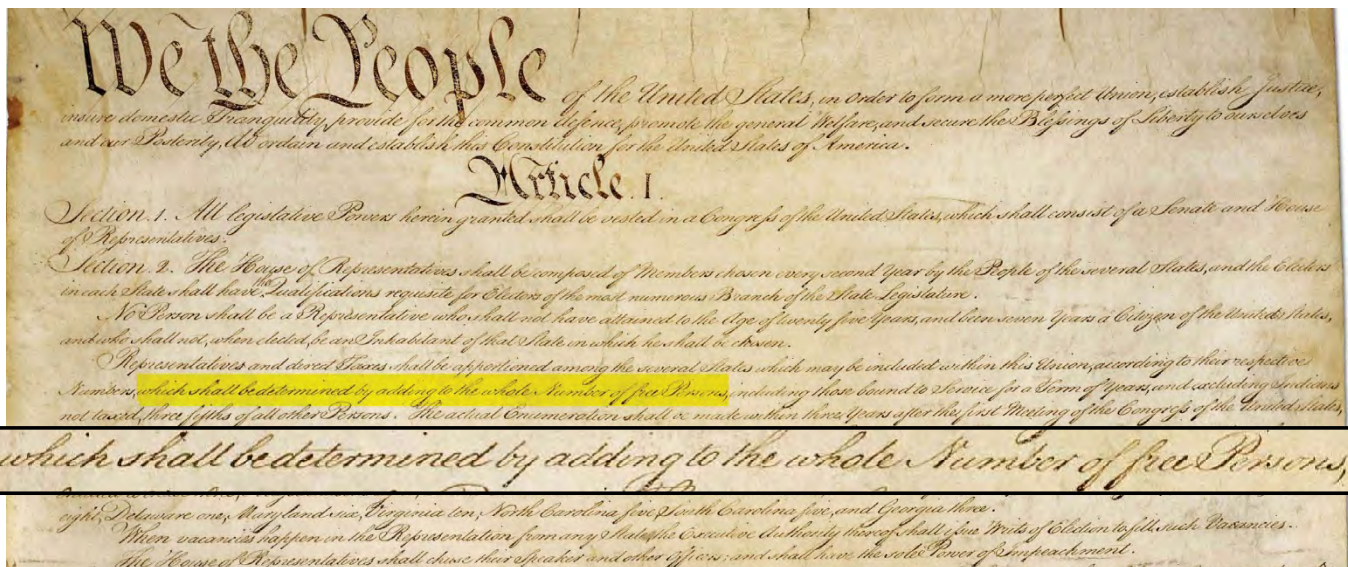 We the People of the United States, in Order to form a more perfect Union, establish Justice,
insure domestic Tranquility, provide for the common defence, promote the general Welfare, and secure the Blessings of Liberty to ourselves
and our Posterity, do ordain and establish this Constitution for the United States of America.
Article. I.
Section. 1. All legislative Powers herein granted shall be vested in a Congress of the United States, which shall consist of a Senate and House
of Representatives.
Section. 2. The House of Representatives shall be composed of Members chosen every second Year by the People of the several States, and the Electors
in each State shall have the Qualifications requisite for Electors of the most numerous Branch of the State Legislature.
No Person shall be a Representative who shall not have attained to the Age of twenty five Years, and been seven Years a Citizen of the United States,
and who shall not, when elected, be an Inhabitant of that State in which he shall be chosen.
Representatives and direct Taxes shall be apportioned among the several States which may be included within this Union, according to their respective
Numbers, which shall be determined by adding to the whole Number of free Persons, including those bound to Service for a Term of Years, and excluding Indians
not taxed, three fifths of all other Persons. The actual Enumeration shall be made within three Years after the first Meeting of the Congress of the United States,
which shall be determined by adding to the whole Number of free Persons,
eight, Delaware one, Maryland six, Virginia ten, North Carolina five, South Carolina five, and Georgia three.
When vacancies happen in the Representation from any State, the Executive Authority thereof shall issue Writs of Election to fill such Vacancies.
The House of Representatives shall chuse their Speaker and other Officers; and shall have the sole Power of Impeachment.